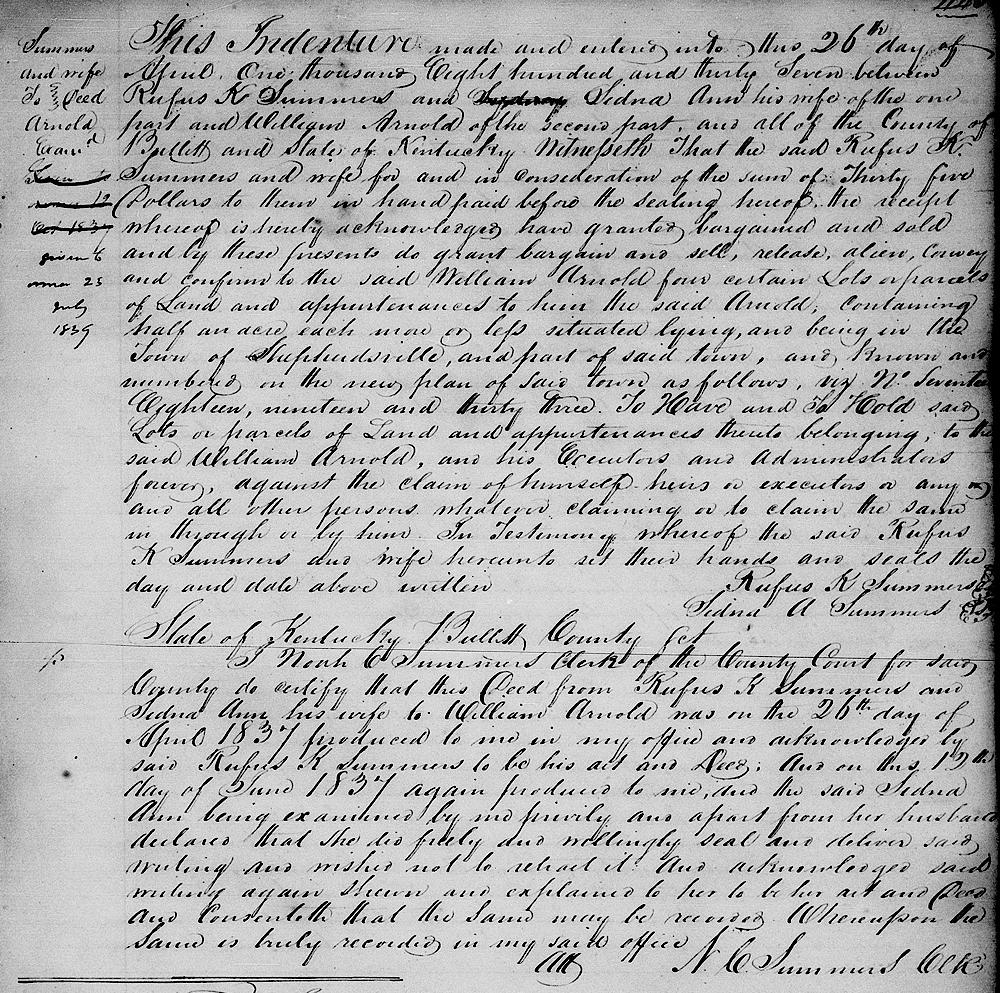 Summers
and wife
To } Deed
Arnold
Exam.d
given 6
25
July
1839
This Indenture made and entered into this 26th day of
April One thousand Eight hundred and thirty Seven between
Rufus K Summers and Sidna Ann his wife of the one
part and William Arnold of the second part, and all of the County of
Bullitt and State of Kentucky Witnesseth That the said Rufus K.
Summers and wife for and in consideration of the sum of Thirty five
Dollars to them in hand paid before the sealing hereof, the receipt
whereof is hereby acknowledged have granted bargained and sold
and by these presents do grant bargain and sell, release, alien, convey
and confirm to the said William Arnold four certain Lots or parcels
of Land and appurtenances to him the said Arnold, containing
half an acre each more or less situated lying, and being in the
Town of Shepherdsville, and part of said town, and known and
numbered on the new plan of said town as follows, viz No Seventeen
Eighteen, nineteen and thirty three. To Have and To Hold said
Lots or parcels of Land and appurtenances thereto belonging, to the
said William Arnold, and his Executors and Administrators
forever, against the claim of himself heirs or executors or any
and all other persons whatever claiming or to claim the same
in through or by him. In Testimony whereof the said Rufus
K Summers and wife hereunto set their hands and seals the
day and date above written
Rufus K Summers
Sidna A Summers
State of Kentucky Bullitt County Sct
I Noah C Summers Clerk of the County Court for said
County do certify that this Deed from Rufus K Summers and
Sidna Ann his wife to William Arnold was on the 26th day of
April 1837 produced to me in my office and acknowledged by
said Rufus K Summers to be his act and Deed; And on this 12th
day of June 1837 again produced to me, and the said Sidna
Ann being examined by me privily and apart from her husband
declared that she did freely and willingly seal and deliver said
writing and wished not to retract it And acknowledged said
writing again shewn and explained to her to be her act and Deed
And Consenteth that the Same may be recorded Whereupon the
Same is truly recorded in my said office
Att N. C. Summers Clk